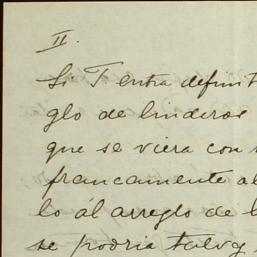 II.
Si T entra definit
glo de linderos
que se viera con
francamente al
lo ál arreglo de l
se podria talvez